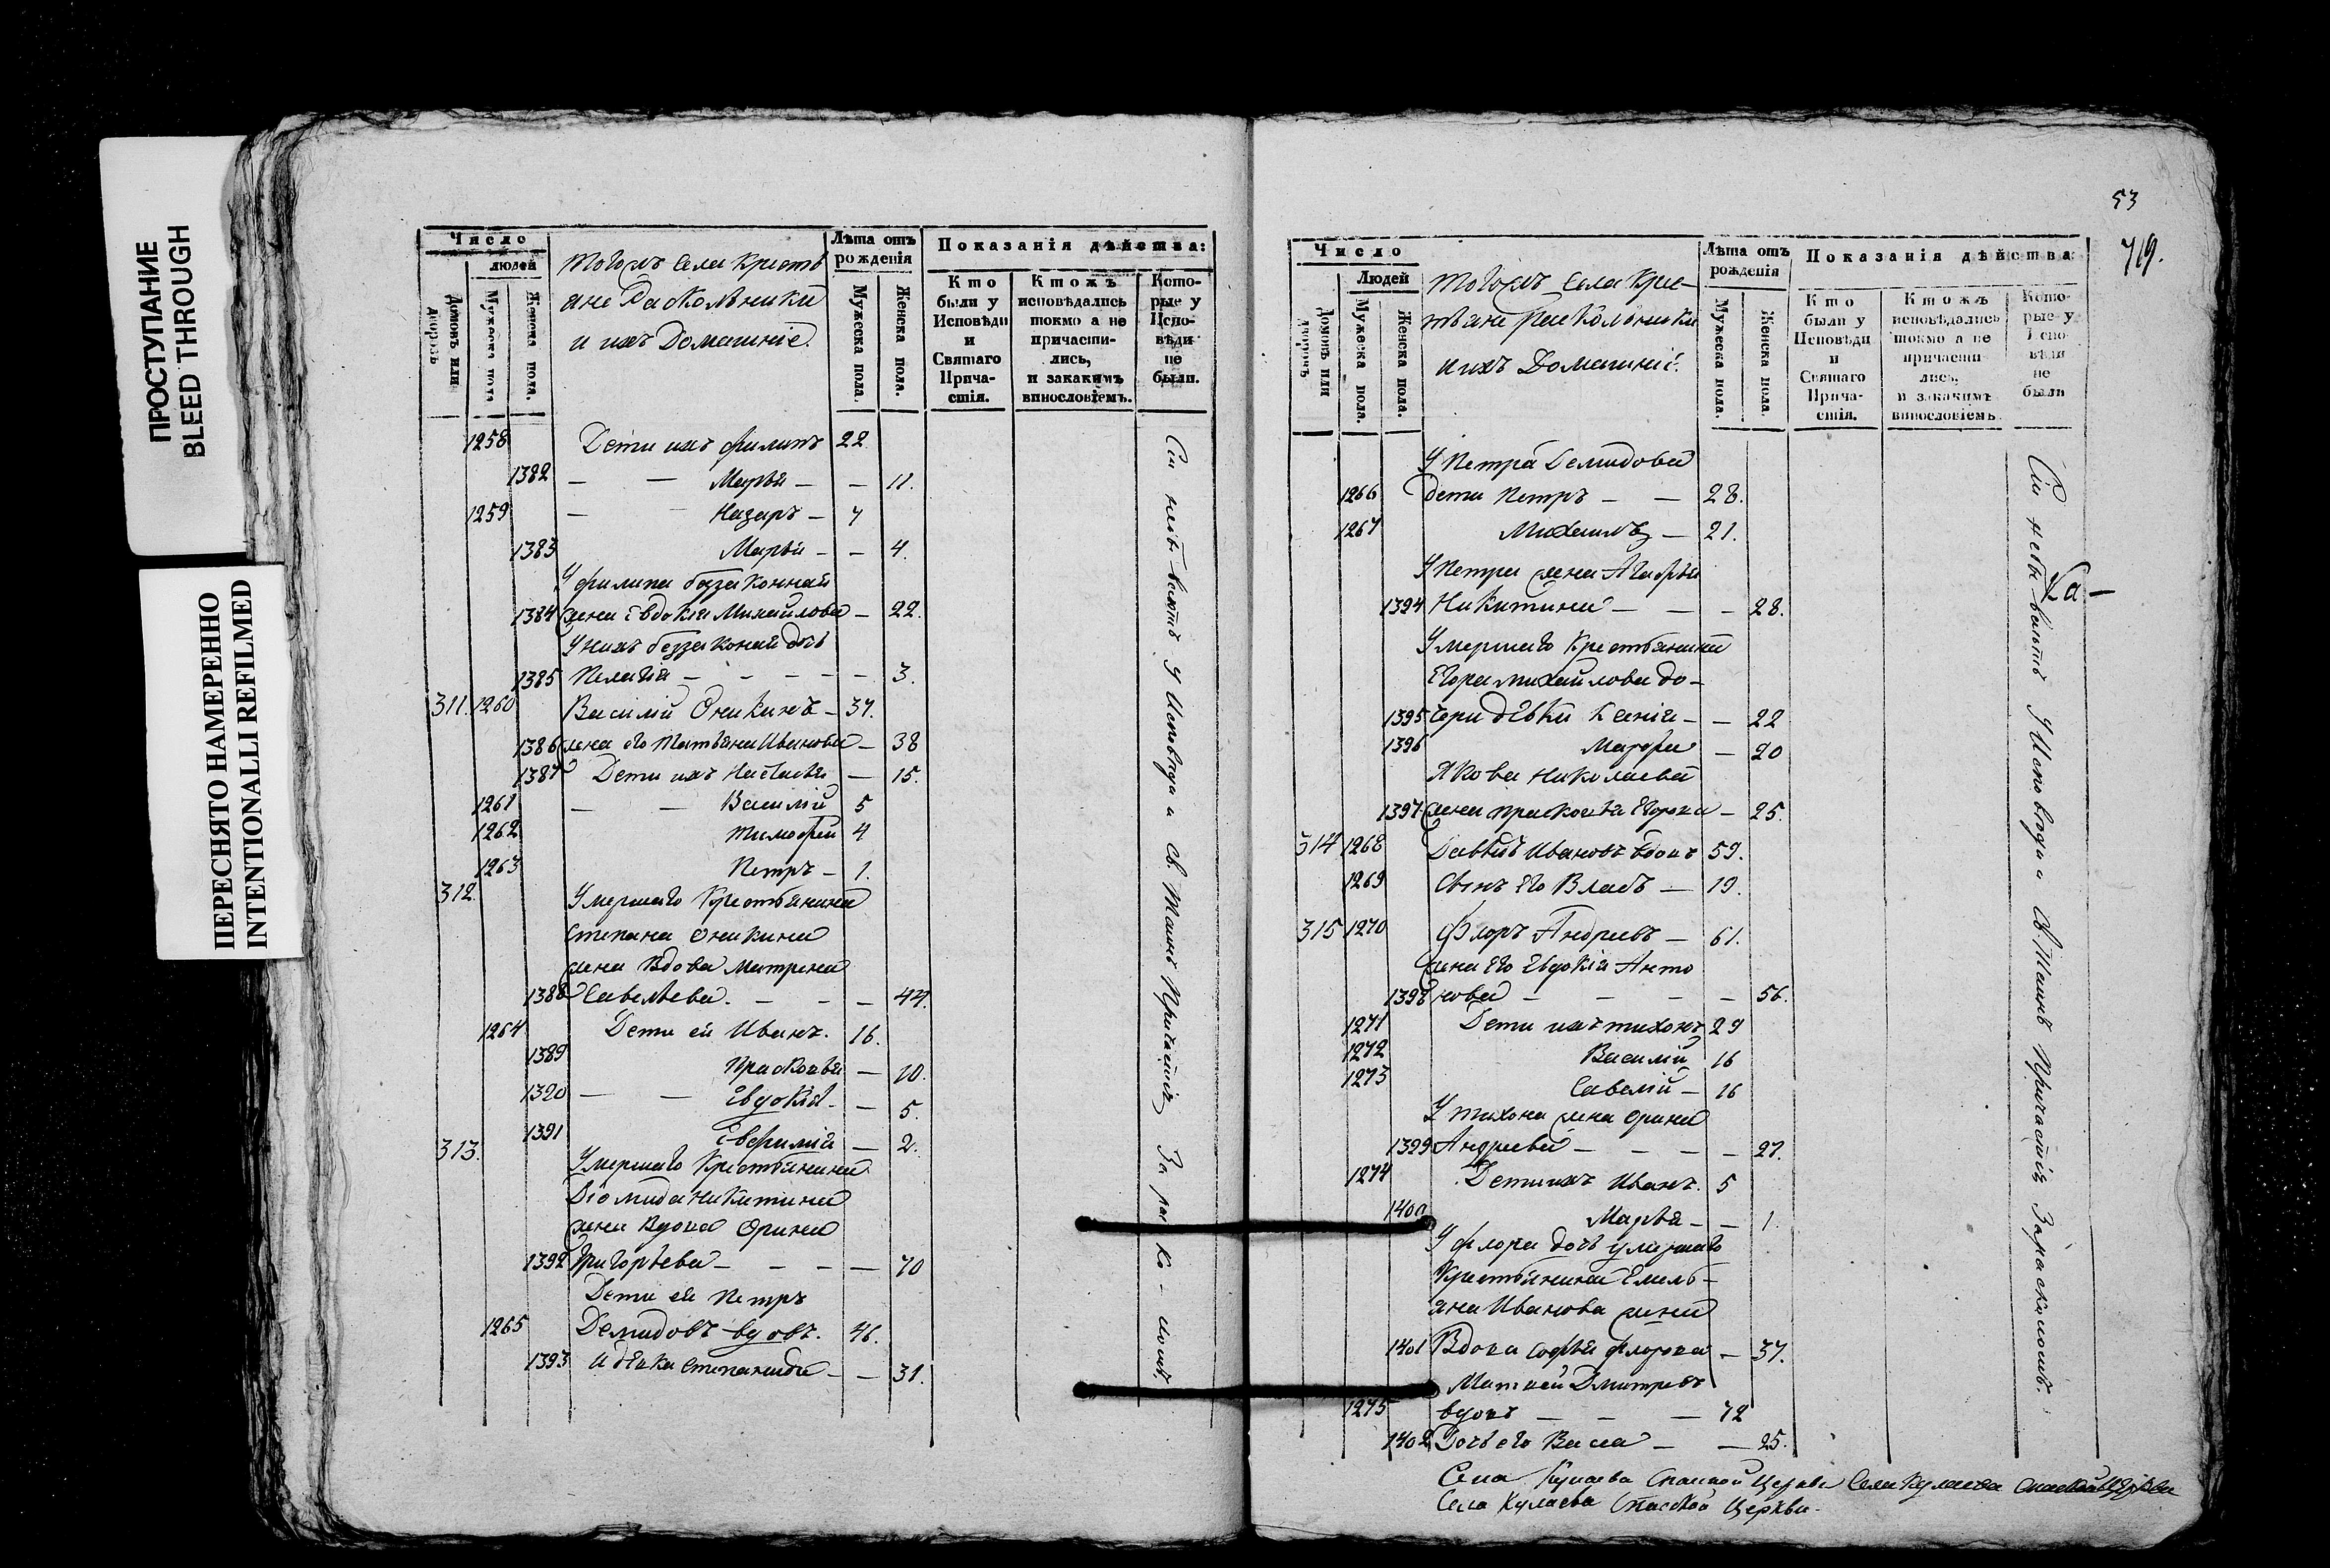 ПРОСТУПАНИЕ
BLEED THROUGH
ПЕРЕСНЯТО НАМЕРЕННО
INTENTIONALLI REFILMED
Число
людей
Домовъ или дворовъ
Мужеска пола
Женска пола.
тогожъ села кресть
яне Раскольники
и ихъ Домашніе.
Лѣта отъ рожденія
Мужеска пола.
Женска пола.
Показанія дѣйства:
Кто были у Исповѣди и Святаго Причастія.
Ктожъ исповѣдались токмо а не причастились, и закакимъ винословіемъ.
Которые у Исповѣди не были.
1258 Дети ихъ филипъ 22
1382 — — Марья — — 11.
1259 — — Назаръ — 7
1383 Марья — — 4.
У филипа беззаконная
1384 жена Евдокія Михайлова — 22.
У нихъ беззаконая дочь
1385 Пелагія — — — — — 3.
311. 1260 Василій Оникинъ — 37.
1386 жена его Татьяна Иванова — 38
1387 Дети ихъ Настасья — 15.
1261 — — Василій 5
1262 Тимофей 4
1263 Петръ — 1.
312. Умершаго Крестьянина
Степана Оникина
жена вдова Матрена
1388 Савельева. — — — 44.
1264 Дети ей Иванъ. 16.
1389 Прасковья — 10.
1390 — — Евдокія — — 5.
1391 Евфимія — 2.
313. Умершаго Крестьянина
Діомида Никитина
жена вдова Орина
1392 Григорьева — — — — 70
Дети ей Петръ
1265 Демидовъ вдовъ. 46.
1393 и девка Степанида — — 31.
Сіи небываютъ у Исповеди и Св. Таинъ Причастія За раско-ломъ.
53
719.
Число
Людей
Домовъ или дворовъ
Мужеска пола.
Женска пола.
тогожъ села крес-
тьяне раскольники
и ихъ Домашніе.
Лѣта отъ рожденія
Мужеска пола.
Женска пола.
Показанія дѣйства
Кто были у Исповѣди и Святаго Причастія.
Ктожъ исповѣдались токмо а не причастились, и закакимъ винословіемъ
Которые у Исповѣди не были
У Петра Демидова
1266 дети Петръ — — 28.
1267 Михаилъ — 21.
У Петра жена Агафья
1394 Никитина — — — 28.
Умершаго Крестьянина
Егора михайлова до-
1395 чери девки Ксенія — — 22
1396 Марфа — 20
Якова Николаева
1397 жена прасковья Егорова — 25.
314 1268 Давыдъ Ивановъ вдовъ 59.
1269 Сынъ Его Власъ — 19.
315 1270 Флоръ Андреевъ — 61.
жена Его Евдокія Анто
1398 нова — — — — 56.
1271 Дети ихъ тихонъ 29
1272 Василій 16
1273 Савелій — 16
У тихона жена Орина
1399 Андреева — — — — 27.
1274 Дети ихъ Иванъ. 5
1400 Марья — — 1
У флора дочь умершаго
Крестьянина Емель-
яна Иванова жена
1401 Вдова софья флорова — 37.
Матвей Дмитревъ
1275 вдовъ — — — 72
1402 Дочь его Васса — — 25.
Сіи небываютъ У Исповеди и Св. Таинъ Причастія За расколомъ.
Села Кулаева Спаской Церкви Села Кулаева Спаской Церкви
Села Кулаева Спаской Церкви.